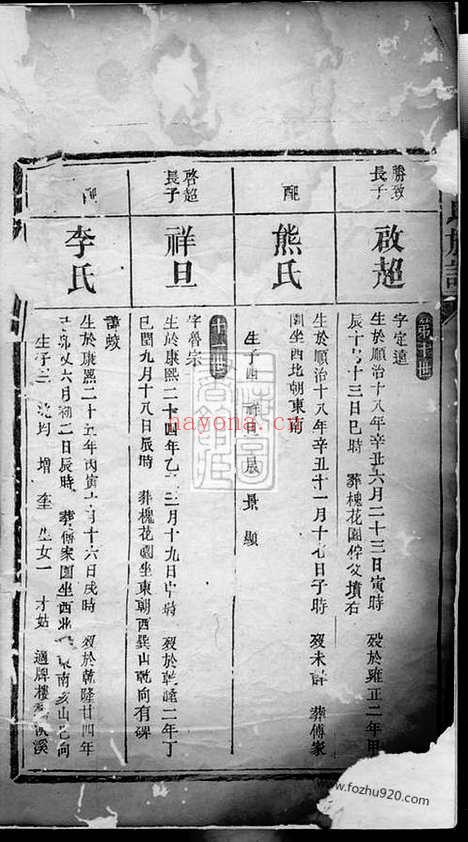 氏族譜
勝致長子
啟超
第十一世
字定遠
生於順治十八年辛丑六月二十三日寅時 歿於雍正二年甲
辰十 十三日巳時 葬槐花園 父墳右
配
熊氏
生於順治十八年辛丑十一月十七日子時 歿未詳 葬傅家
園坐西北朝東南
生子四 祥旦 晟 景 顯
啓超長子
祥旦
十二世
字魯宗
生於康熙二十四年乙 三月十九日申時 歿於乾隆二年丁
巳閏九月十八日辰時 葬槐花園坐東朝西巽山乾向有碑
配
李氏
諱姣
生於康熙二十五年丙寅 月十六日戌時 歿於乾隆廿四年
己卯 六月初二日辰時 葬傅家園坐西北 東南亥山巳向
生子三 均 增 奎 生女一 才姑 適牌樓 溪
hayona.cn
www.fozhu920.com